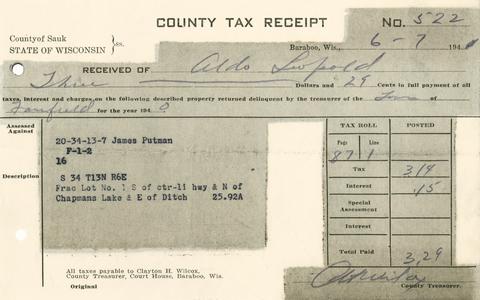 COUNTY TAX RECEIPT No. 522
County of Sauk
STATE OF WISCONSIN } ss.
Baraboo, Wis., 6 - 7 194
RECEIVED OF Aldo Leopold
Three Dollars and 29 Cents in full payment of all
taxes, interest and charges on the following described property returned delinquent by the treasurer of the Town of
Fairfield for the year 194 0
Assessed Against
20-34-13-7 James Putman
F-1-2
16
Description
S 34 T13N R6E
Frac Lot No. 1 S of ctr-li hwy & N of
Chapmans Lake & E of Ditch 25.92A
TAX ROLL POSTED
Page Line
87 1
Tax 3.14
Interest .15
Special Assessment
Interest
Total Paid 3.29
All taxes payable to Clayton H. Wilcox,
County Treasurer, Court House, Baraboo, Wis.
Original
County Treasurer.